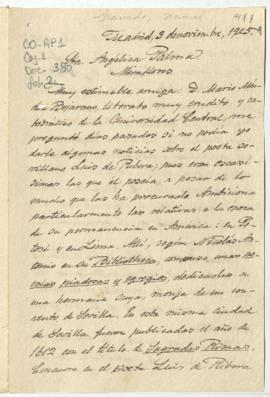 411
Madrid, 3 de noviembre, 1925
CO-AP1
Caj. 1
Doc. 380
fol. 2
Sra. Angélica Palma
Miraflores
Muy estimable amiga: D. Mario Mén-
dez Bejarano, literato muy erudito y ca-
tedrático de la Universidad Central, me
preguntó días pasados si no podía yo
darle algunas noticias sobre el poeta se-
villano Luis de Ribera; pues eran escasí-
simas las que él poseía a pesar de lo
mucho que las ha procurado. Ambiciona
particularmente las relativas a la época
de su permanencia en América: en Po-
tosí y en Lima. Allí, según Nicolás An-
tonio en su Bibliotheca, unas
poesías piadoras y egregias, dedicadas a
una hermana suya, monja de un con-
vento de Sevilla. En esta misma ciudad
de Sevilla fueron publicadas el año de
1612 con el título de Sagradas Rimas.
en el poeta Luis de Ribera